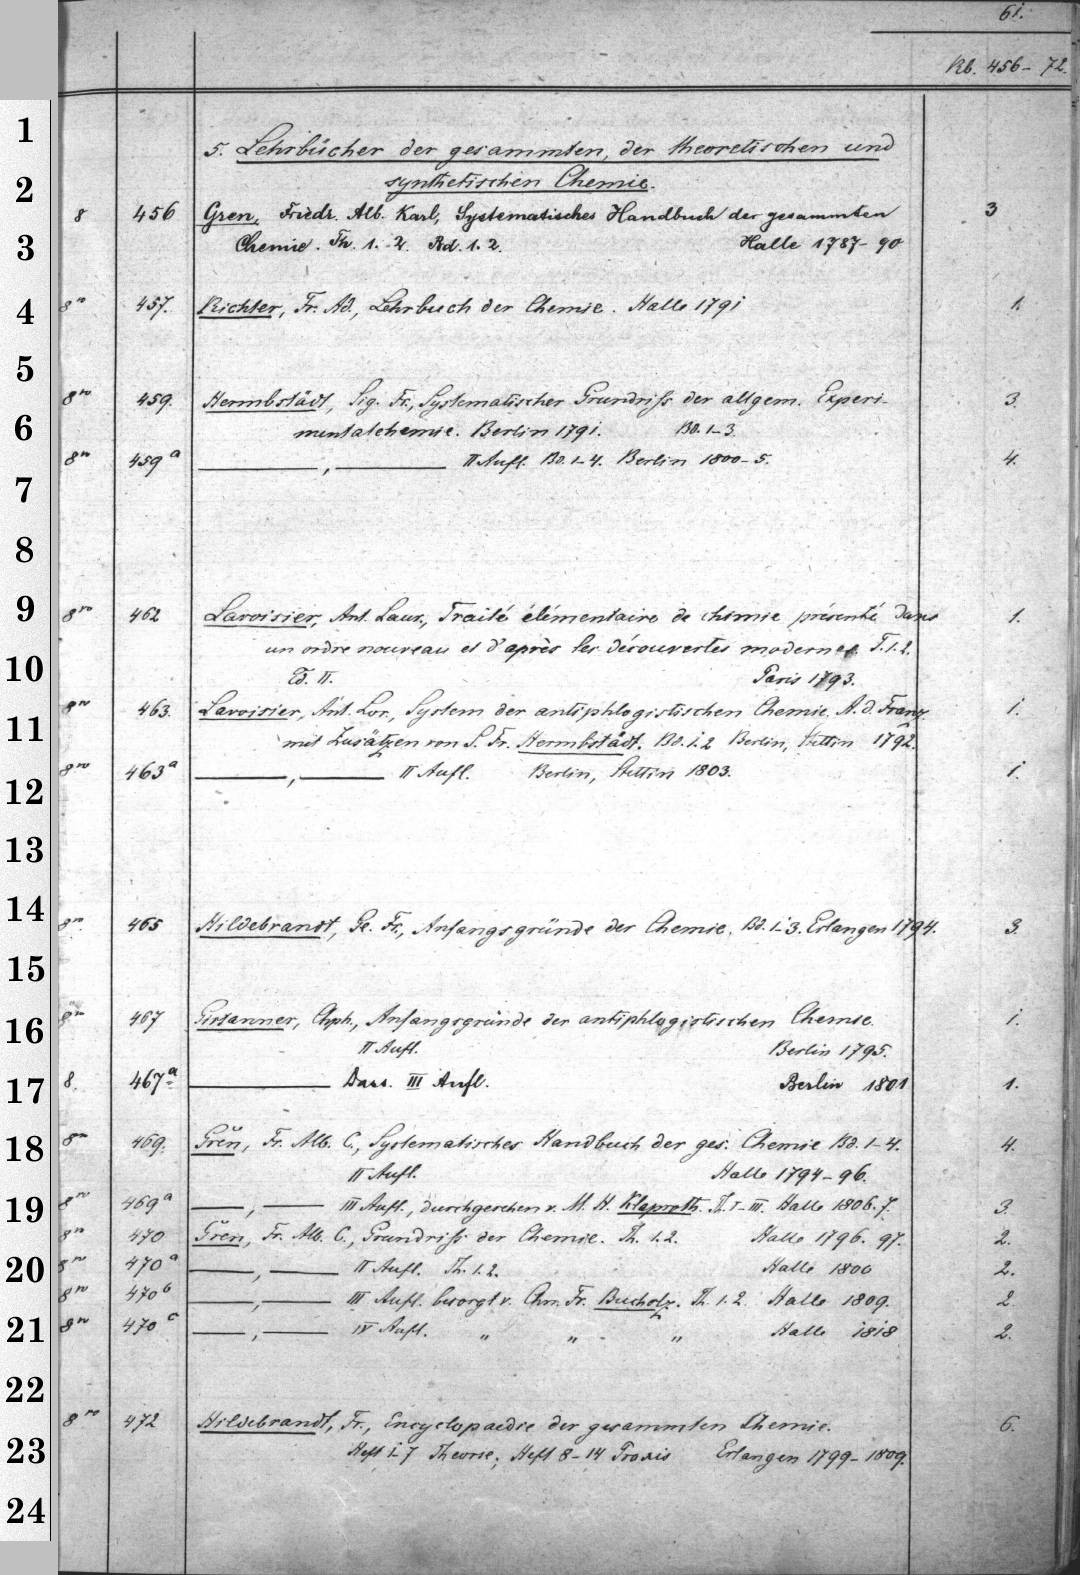 61.
Rb. 456-72.
1
5. Lehrbücher der gesammten, der theoretischen und
2
synthetischen Chemie.
8 456 Gren, Friedr. Alb. Karl, Systematisches Handbuch der gesammten 3
3
Chemie. Th. 1.-2. Bd. 1. 2. Halle 1787-90
4
8vo 457. Richter, Fr. Ad., Lehrbuch der Chemie. Halle 1791 1.
5
8vo 459. Hermbstädt, Sig. Fr., Systematischer Grundriss der allgem. Experi- 3.
6
mentalchemie. Berlin 1791. Bd. 1-3.
8vo 459a ———, ——— II Aufl. Bd. 1-4. Berlin 1800-5. 4.
7
8
9
8vo 462 Lavoisier, Ant. Laur., Traité élémentaire de chimie présenté dans 1.
un ordre nouveau et d'après les découvertes modernes. T. 1.2.
10
Ed. II. Paris 1793.
8vo 463. Lavoisier, Ant. Lor., System der antiphlogistischen Chemie. A. d. Franz. 1.
11
mit Zusätzen von S. Fr. Hermbstädt. Bd. 1.2 Berlin, Stettin 1792.
8vo 463a ———, ——— II Aufl. Berlin, Stettin 1803. 1.
12
13
14
8vo 465 Hildebrandt, Ge. Fr., Anfangsgründe der Chemie. Bd. 1-3. Erlangen 1794. 3.
15
16
8vo 467 Girtanner, Chph., Anfangsgründe der antiphlogistischen Chemie. 1.
II Aufl. Berlin 1795.
17
8. 467a ——— Dass. III Aufl. Berlin 1801 1.
18
8vo 469. Gren, Fr. Alb. C., Systematisches Handbuch der ges. Chemie Bd. 1-4. 4.
II Aufl. Halle 1794-96.
19
8vo 469a ———, ——— III Aufl., durchgesehen v. M. H. Klaproth. Th. I-III. Halle 1806.7. 3.
8vo 470 Gren, Fr. Alb. C., Grundriss der Chemie. Th. 1.2. Halle 1796. 97. 2.
20
8vo 470a ———, ——— II Aufl. Th. 1.2. Halle 1800 2.
8vo 470b ———, ——— III Aufl. besorgt v. Chn. Fr. Bucholz. Th. 1.2. Halle 1809. 2
21
8vo 470c ———, ——— IV Aufl. „ „ „ Halle 1818 2.
22
8vo 472 Hildebrandt, Fr., Encyclopaedie der gesammten Chemie. 6.
23
Heft 1-7 Theorie; Heft 8-14 Praxis Erlangen 1799-1809.
24